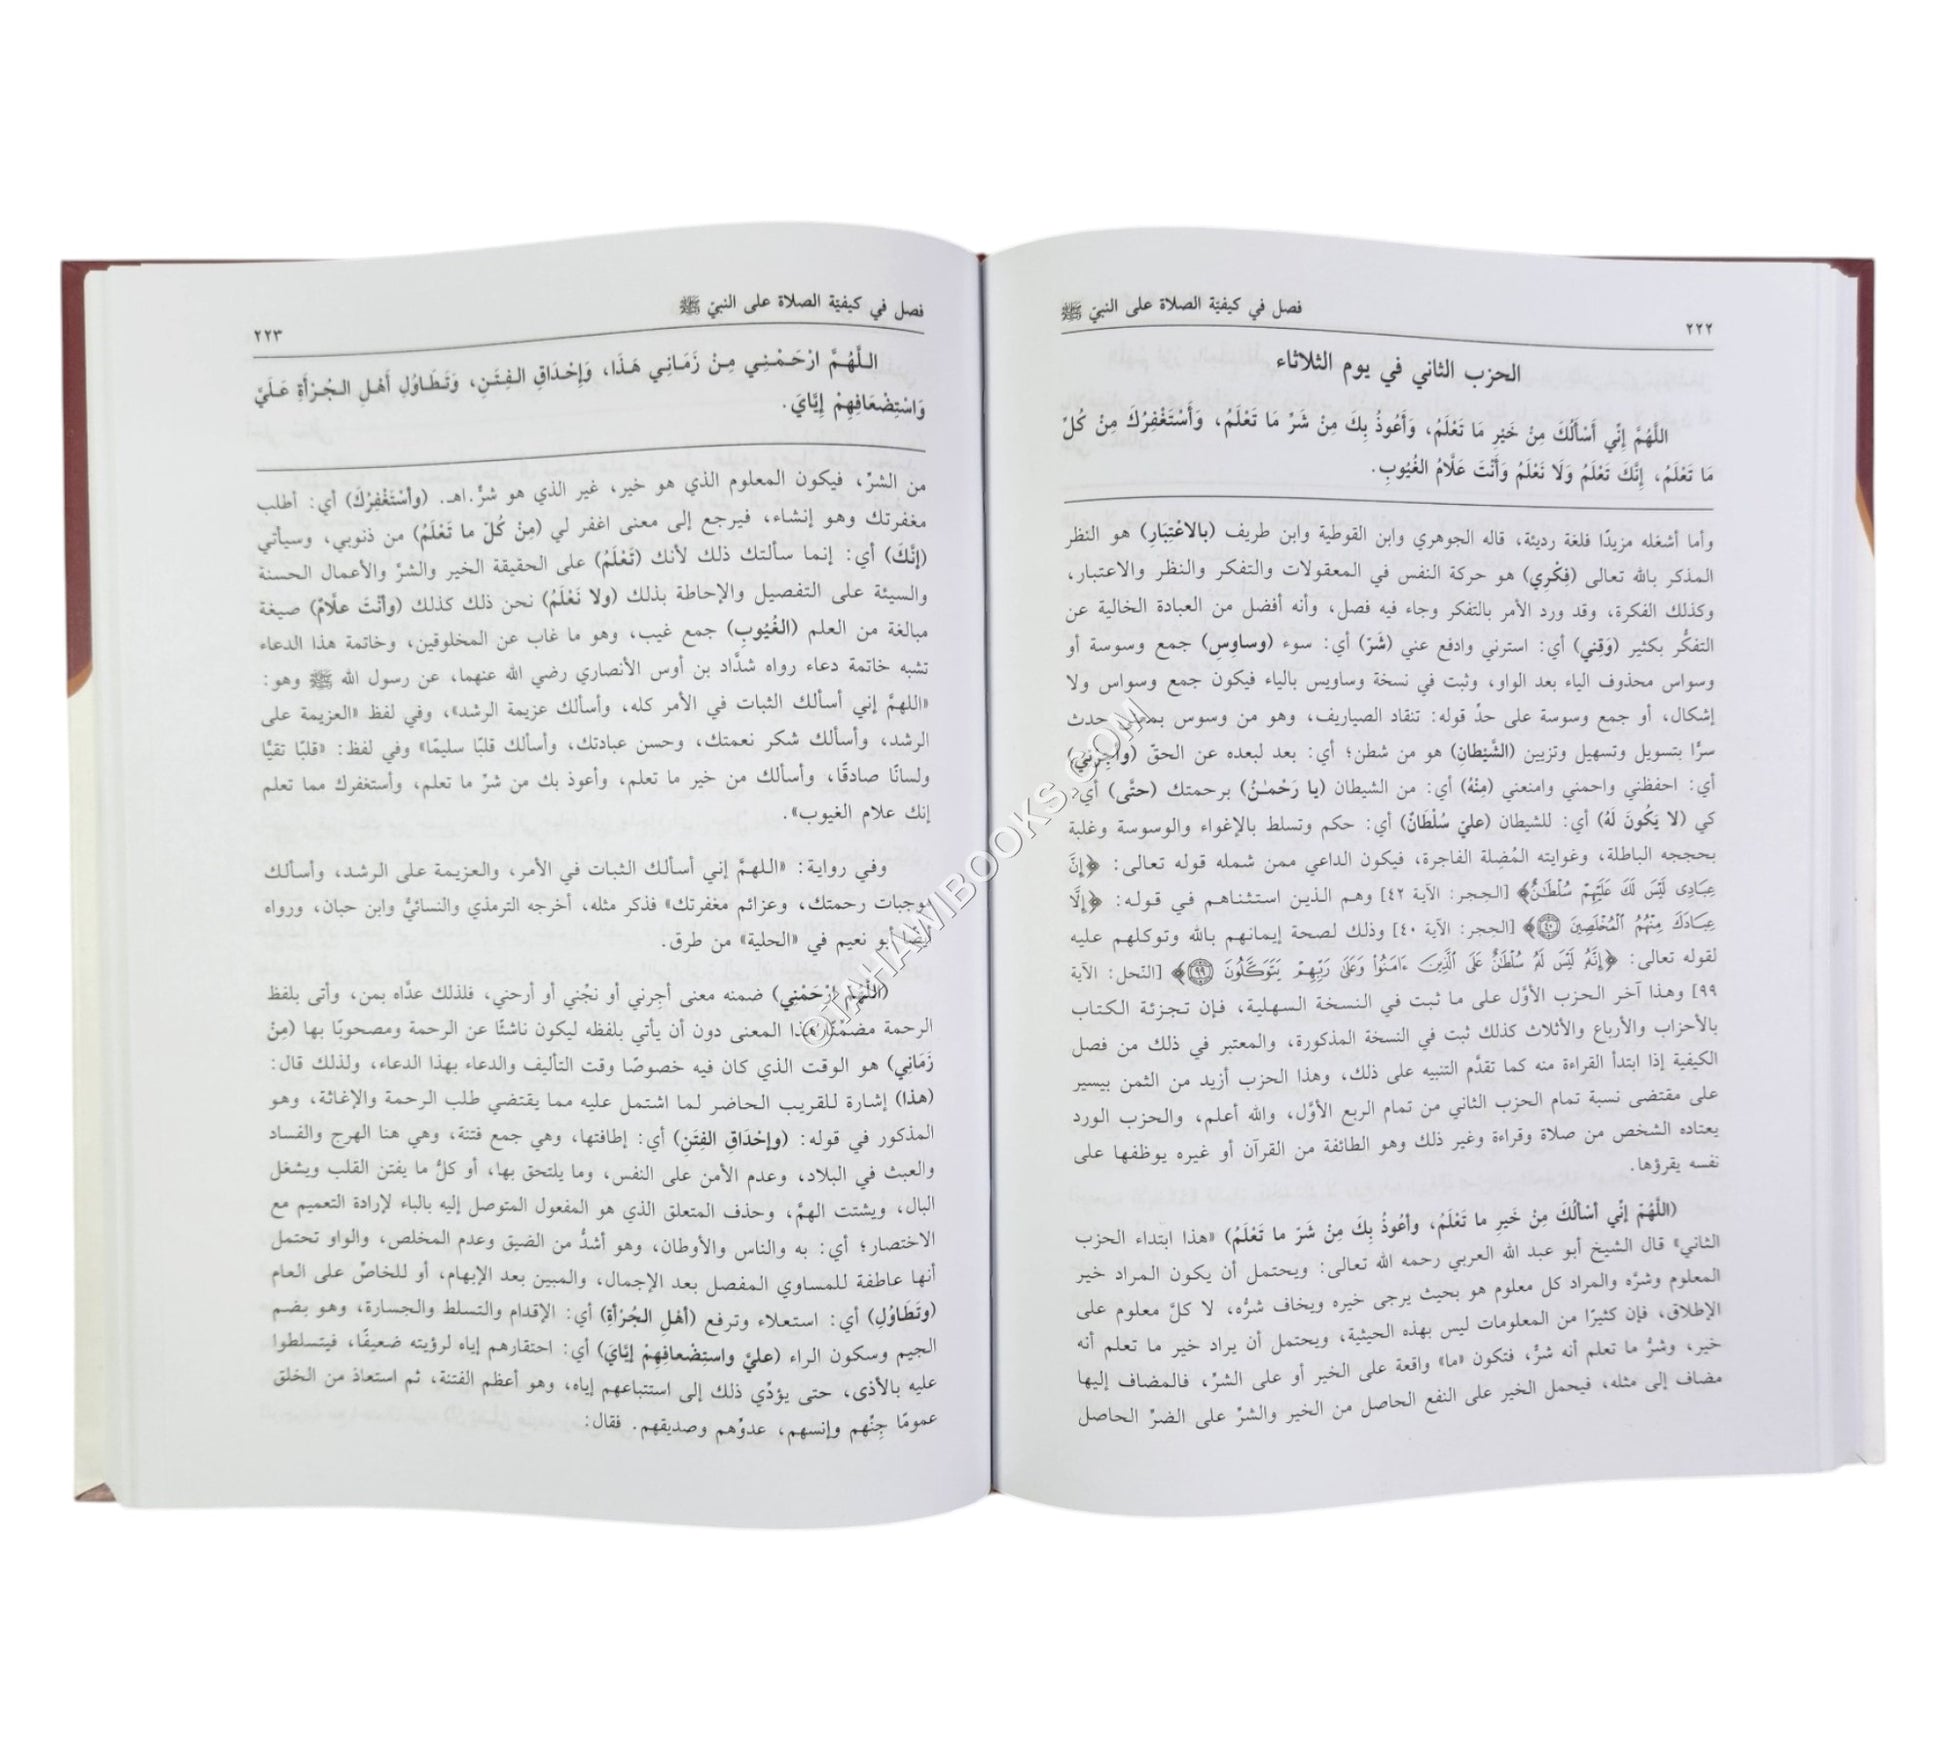 ٢٢٢
فصل في كيفيّة الصلاة على النبيّ ﷺ
الحزب الثاني في يوم الثلاثاء
اللَّهُمَّ إِنِّي أَسْأَلُكَ مِنْ خَيْرِ مَا تَعْلَمُ، وَأَعُوذُ بِكَ مِنْ شَرِّ مَا تَعْلَمُ، وَأَسْتَغْفِرُكَ مِنْ كُلِّ
مَا تَعْلَمُ، إِنَّكَ تَعْلَمُ وَلَا نَعْلَمُ وَأَنْتَ عَلَّامُ الغُيُوبِ.
وأما أشغله مزيدًا فلغة رديئة، قاله الجوهري وابن القوطية وابن طريف (بالاعْتِبَارِ) هو النظر
المذكر بالله تعالى (فِكْرِي) هو حركة النفس في المعقولات والتفكر والنظر والاعتبار،
وكذلك الفكرة، وقد ورد الأمر بالتفكر وجاء فيه فصل، وأنه أفضل من العبادة الخالية عن
التفكُّر بكثير (وَقِني) أي: استرني وادفع عني (شَرّ) أي: سوء (وساوِسِ) جمع وسوسة أو
وسواس محذوف الياء بعد الواو، وثبت في نسخة وساويس بالياء فيكون جمع وسواس ولا
إشكال، أو جمع وسوسة على حدِّ قوله: تنقاد الصياريف، وهو من وسوس بمعنى حدث
سرًّا بتسويل وتسهيل وتزيين (الشَّيْطانِ) هو من شطن؛ أي: بعد لبعده عن الحقّ (وأجِرْني)
أي: احفظني واحمني وامنعني (مِنْهُ) أي: من الشيطان (يا رَحْمـٰنُ) برحمتك (حتَّى) أي:
كي (لا يَكُونَ لَهُ) أي: للشيطان (عليّ سُلْطَانٌ) أي: حكم وتسلط بالإغواء والوسوسة وغلبة
بحججه الباطلة، وغوايته المُضِلة الفاجرة، فيكون الداعي ممن شمله قوله تعالى: ﴿إِنَّ
عِبَادِى لَيْسَ لَكَ عَلَيْهِمْ سُلْطَـٰنٌ﴾ [الحجر: الآية ٤٢] وهم الذين استثناهم في قوله: ﴿إِلَّا
عِبَادَكَ مِنْهُمُ الْمُخْلَصِينَ ٤٠﴾ [الحجر: الآية ٤٠] وذلك لصحة إيمانهم بالله وتوكلهم عليه
لقوله تعالى: ﴿إِنَّهُ لَيْسَ لَهُ سُلْطَـٰنٌ عَلَى الَّذِينَ ءَامَنُوا وَعَلَىٰ رَبِّهِمْ يَتَوَكَّلُونَ ٩٩﴾ [النّحل: الآية
٩٩] وهذا آخر الحزب الأوَّل على ما ثبت في النسخة السهلية، فإن تجزئة الكتاب
بالأحزاب والأرباع والأثلاث كذلك ثبت في النسخة المذكورة، والمعتبر في ذلك من فصل
الكيفية إذا ابتدأ القراءة منه كما تقدَّم التنبيه على ذلك، وهذا الحزب أزيد من الثمن بيسير
على مقتضى نسبة تمام الحزب الثاني من تمام الربع الأوَّل، والله أعلم، والحزب الورد
يعتاده الشخص من صلاة وقراءة وغير ذلك وهو الطائفة من القرآن أو غيره يوظفها على
نفسه يقرؤها.
(اللَّهُمّ إنّي أسْألُكَ مِنْ خَيرِ ما تَعْلَمُ، وأعُوذُ بِكَ مِنْ شَرّ ما تَعْلَمُ) «هذا ابتداء الحزب
الثاني» قال الشيخ أبو عبد الله العربي رحمه الله تعالى: ويحتمل أن يكون المراد خير
المعلوم وشرَّه والمراد كل معلوم هو بحيث يرجى خيره ويخاف شرُّه، لا كلَّ معلوم على
الإطلاق، فإن كثيرًا من المعلومات ليس بهذه الحيثية، ويحتمل أن يراد خير ما تعلم أنه
خير، وشرُّ ما تعلم أنه شرُّ، فتكون «ما» واقعة على الخير أو على الشرِّ، فالمضاف إليها
مضاف إلى مثله، فيحمل الخير على النفع الحاصل من الخير والشرِّ على الضرِّ الحاصل
فصل في كيفيّة الصلاة على النبيّ ﷺ
٢٢٣
اللَّهُمَّ ارْحَمْنِي مِنْ زَمَانِي هَذَا، وَإِحْدَاقِ الفِتَنِ، وَتَطَاوُلِ أَهْلِ الجُرْأَةِ عَلَيَّ
وَاسْتِضْعَافِهِمْ إِيَّايَ.
من الشرِّ، فيكون المعلوم الذي هو خير، غير الذي هو شرٌّ. اهـ. (وأسْتَغْفِرُكَ) أي: أطلب
مغفرتك وهو إنشاء، فيرجع إلى معنى اغفر لي (مِنْ كُلّ ما تَعْلَمُ) من ذنوبي، وسيأتي
(إنَّكَ) أي: إنما سألتك ذلك لأنك (تَعْلَمُ) على الحقيقة الخير والشرَّ والأعمال الحسنة
والسيئة على التفصيل والإحاطة بذلك (ولا نَعْلَمُ) نحن ذلك كذلك (وأنْتَ علَّامُ) صيغة
مبالغة من العلم (الغُيُوبِ) جمع غيب، وهو ما غاب عن المخلوقين، وخاتمة هذا الدعاء
تشبه خاتمة دعاء رواه شدَّاد بن أوس الأنصاري رضي الله عنهما، عن رسول الله ﷺ وهو:
«اللهمَّ إني أسألك الثبات في الأمر كله، وأسألك عزيمة الرشد»، وفي لفظ «العزيمة على
الرشد، وأسألك شكر نعمتك، وحسن عبادتك، وأسألك قلبًا سليمًا» وفي لفظ: «قلبًا تقيًّا
ولسانًا صادقًا، وأسألك من خير ما تعلم، وأعوذ بك من شرِّ ما تعلم، وأستغفرك مما تعلم
إنك علام الغيوب».
وفي رواية: «اللهمَّ إني أسألك الثبات في الأمر، والعزيمة على الرشد، وأسألك
موجبات رحمتك، وعزائم مغفرتك» فذكر مثله، أخرجه الترمذي والنسائيُّ وابن حبان، ورواه
أيضًا أبو نعيم في «الحلية» من طرق.
(اللَّهُمّ ارْحَمْنِي) ضمنه معنى أجرني أو نجْني أو أرحني، فلذلك عدَّاه بمن، وأتى بلفظ
الرحمة مضمِّنًا هذا المعنى دون أن يأتي بلفظه ليكون ناشئًا عن الرحمة ومصحوبًا بها (مِنْ
زَمَانِي) هو الوقت الذي كان فيه خصوصًا وقت التأليف والدعاء بهذا الدعاء، ولذلك قال:
(هذا) إشارة للقريب الحاضر لما اشتمل عليه مما يقتضي طلب الرحمة والإغاثة، وهو
المذكور في قوله: (وإحْدَاقِ الفِتَنِ) أي: إطافتها، وهي جمع فتنة، وهي هنا الهرج والفساد
والعبث في البلاد، وعدم الأمن على النفس، وما يلتحق بها، أو كلُّ ما يفتن القلب ويشغل
البال، ويشتت الهمَّ، وحذف المتعلق الذي هو المفعول المتوصل إليه بالباء لإرادة التعميم مع
الاختصار؛ أي: به والناس والأوطان، وهو أشدُّ من الضيق وعدم المخلص، والواو تحتمل
أنها عاطفة للمساوي المفصل بعد الإجمال، والمبين بعد الإبهام، أو للخاصِّ على العام
(وتَطَاوُلِ) أي: استعلاء وترفع (أهْلِ الجُرْأةِ) أي: الإقدام والتسلط والجسارة، وهو بضم
الجيم وسكون الراء (عليّ واستِضْعافِهِمْ إيَّايَ) أي: احتقارهم إياه لرؤيته ضعيفًا، فيتسلطوا
عليه بالأذى، حتى يؤدِّي ذلك إلى استتباعهم إياه، وهو أعظم الفتنة، ثم استعاذ من الخلق
عمومًا جنّهم وإنسهم، عدوِّهم وصديقهم. فقال:
©TAHAMIBOOKS.COM